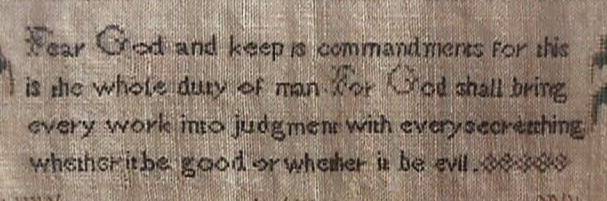 Fear God and keep is commandments For this
is the whole duty of man For God shall bring
every work into judgment with every secret thing
whether it be good or whether it be evil.